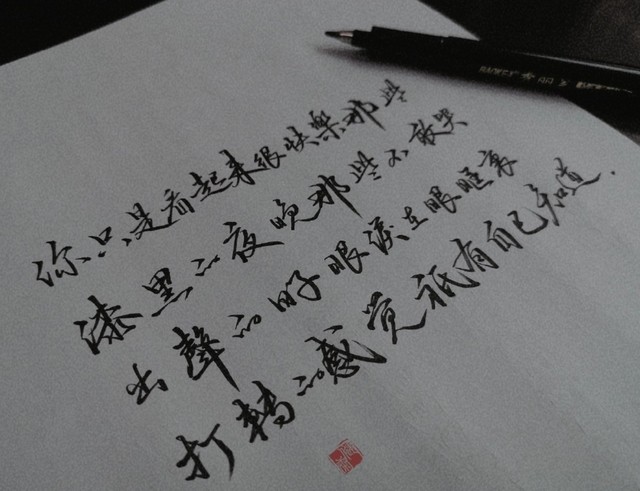 你只是看起来很快樂那些
漆黑的夜晚那些不敢哭
出聲的日子眼淚在眼眶裏
打轉的感觉祇有自己知道.